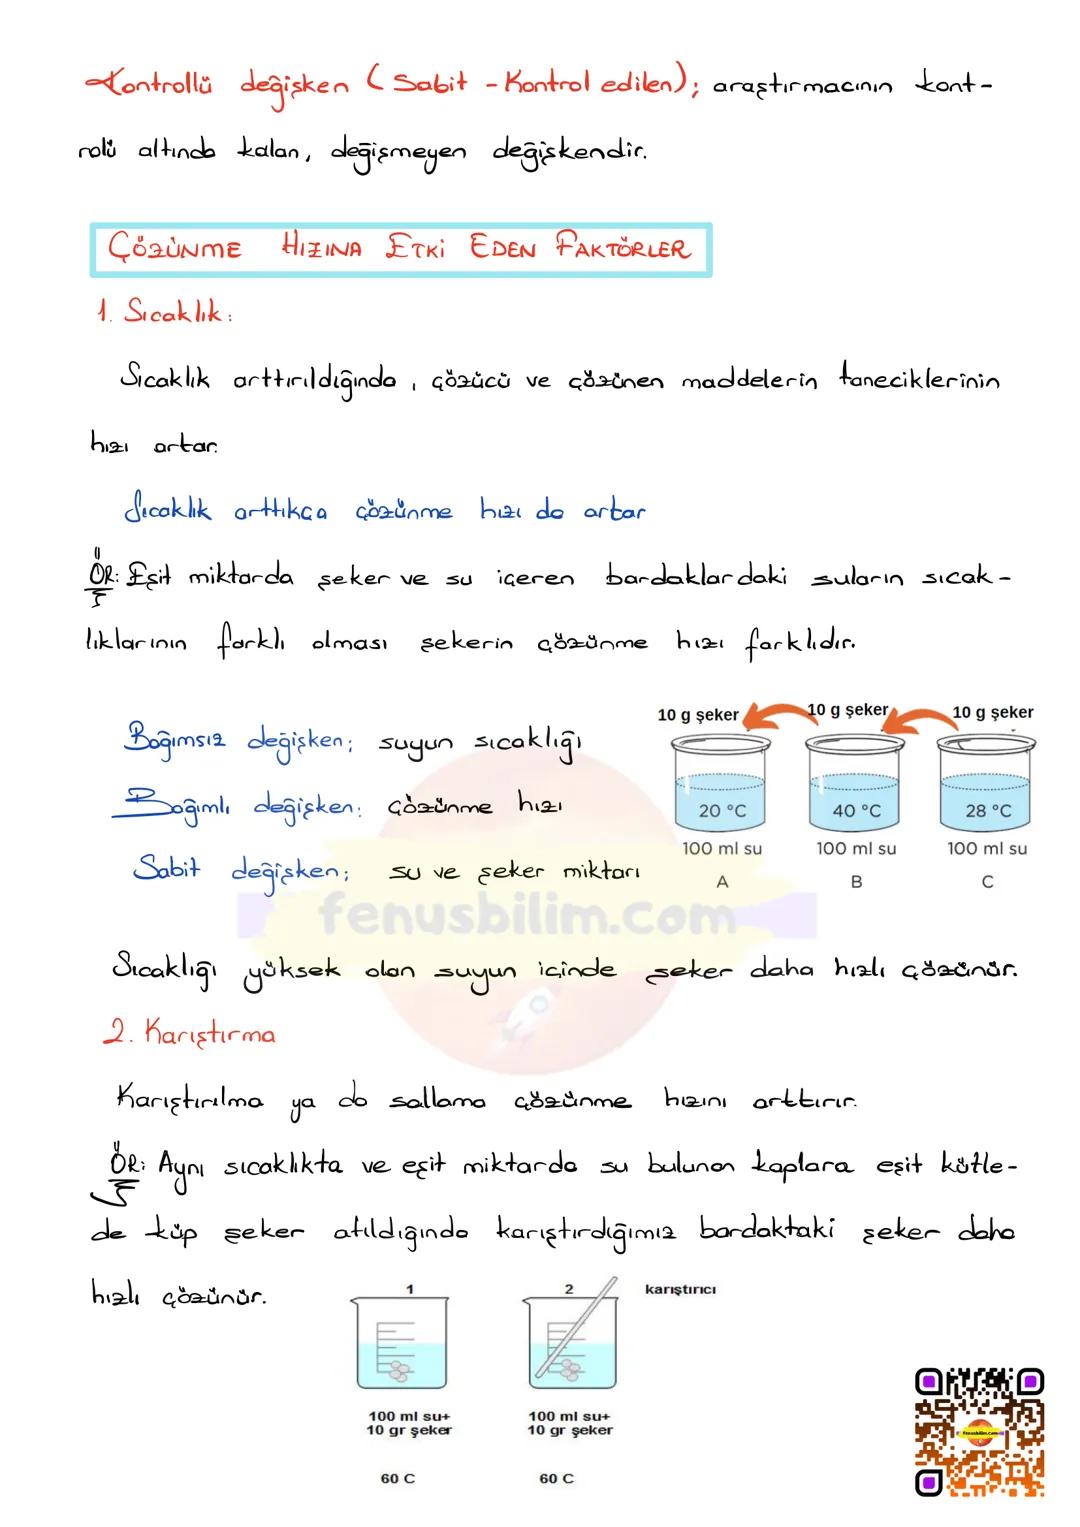 Kontrollü değişken (Sabit - Kontrol edilen); araştırmacının kont-
rolü altında kalan, değişmeyen değişkendir.
ÇÖZÜNME HIZINA ETKİ EDEN FAKTÖRLER
1. Sıcaklık:
Sıcaklık arttırıldığında, çözücü ve çözünen maddelerin taneciklerinin
hızı artar.
Sıcaklık arttıkça çözünme hızı da artar
ÖR: Eşit miktarda şeker ve su içeren bardaklardaki suların sıcak-
lıklarının farklı olması şekerin çözünme hızı farklıdır.
Bağımsız değişken; suyun sıcaklığı
Bağımlı değişken: Çözünme hızı
Sabit değişken; su ve şeker miktarı
10 g şeker 10 g şeker 10 g şeker
20 °C 40 °C 28 °C
100 ml su 100 ml su 100 ml su
A B C
fenusbilim.com
Sıcaklığı yüksek olan suyun içinde şeker daha hızlı çözünür.
2. Karıştırma
Karıştırılma ya da sallama çözünme hızını arttırır.
ÖR: Aynı sıcaklıkta ve eşit miktarda su bulunan kaplara eşit kütle-
de küp şeker atıldığında karıştırdığımız bardaktaki şeker daha
hızlı çözünür.
1 2 karıştırıcı
100 ml su+ 100 ml su+
10 gr şeker 10 gr şeker
60 C 60 C
fenusbilim.com